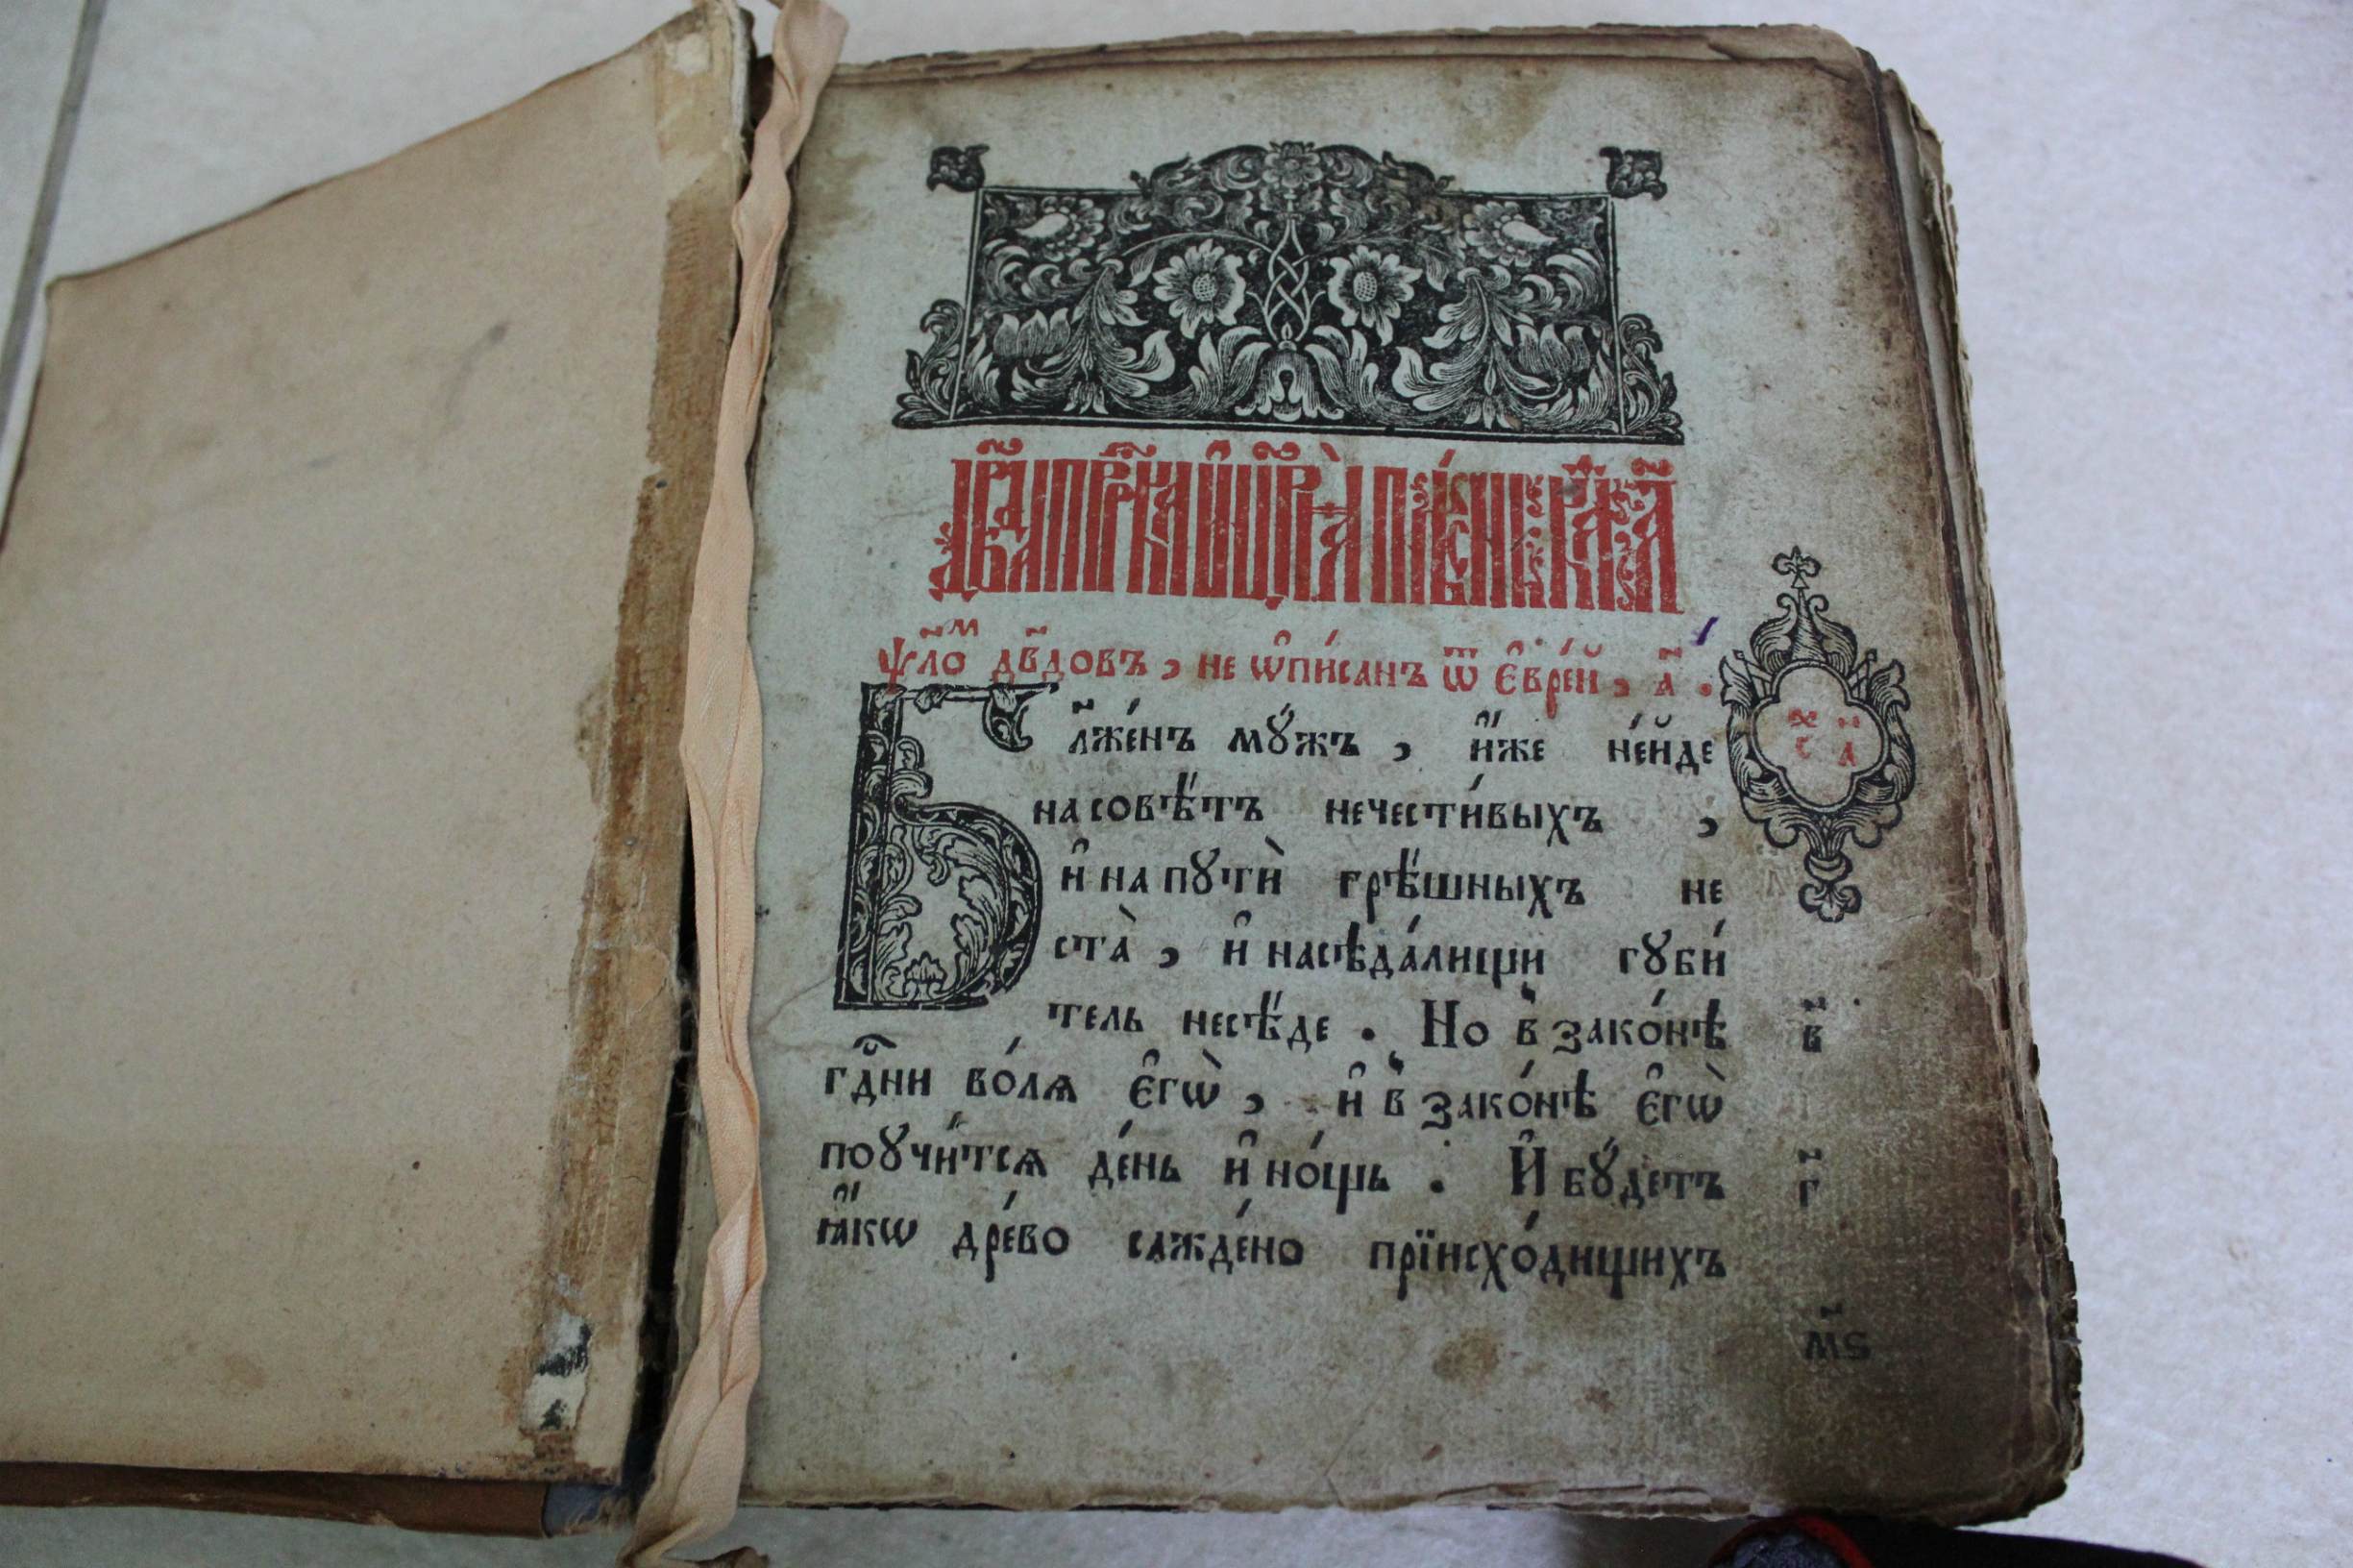 дв҃да прⷪ҇рка и҆ цр҃ѧ̀ пѣ́снь, каѳі́сма, а҃
ѱло҃м дв҃довъ, не ѡ҆пи́санъ ѿ є҆врє́й, а҃.
Бл҃же́нъ мꙋ́жъ, и҆́же не́йде
на совѣ́тъ нечести́выхъ,
и҆ на пꙋтѝ грѣ́шныхъ не
ста̀, и҆ насѣда́лищи гꙋби́
тель несѣ́де. Но в̾ зако́нѣ
в҃
гдⷭ҇ни во́лѧ є҆гѡ̀, и҆ в̾ зако́нѣ є҆гѡ̀
поꙋчи́тсѧ де́нь и҆ но́щь. И҆ бꙋ́детъ
г҃
ꙗ҆́кѡ дре́во сажде́но прїисхо́дищихъ
м҃ѕ